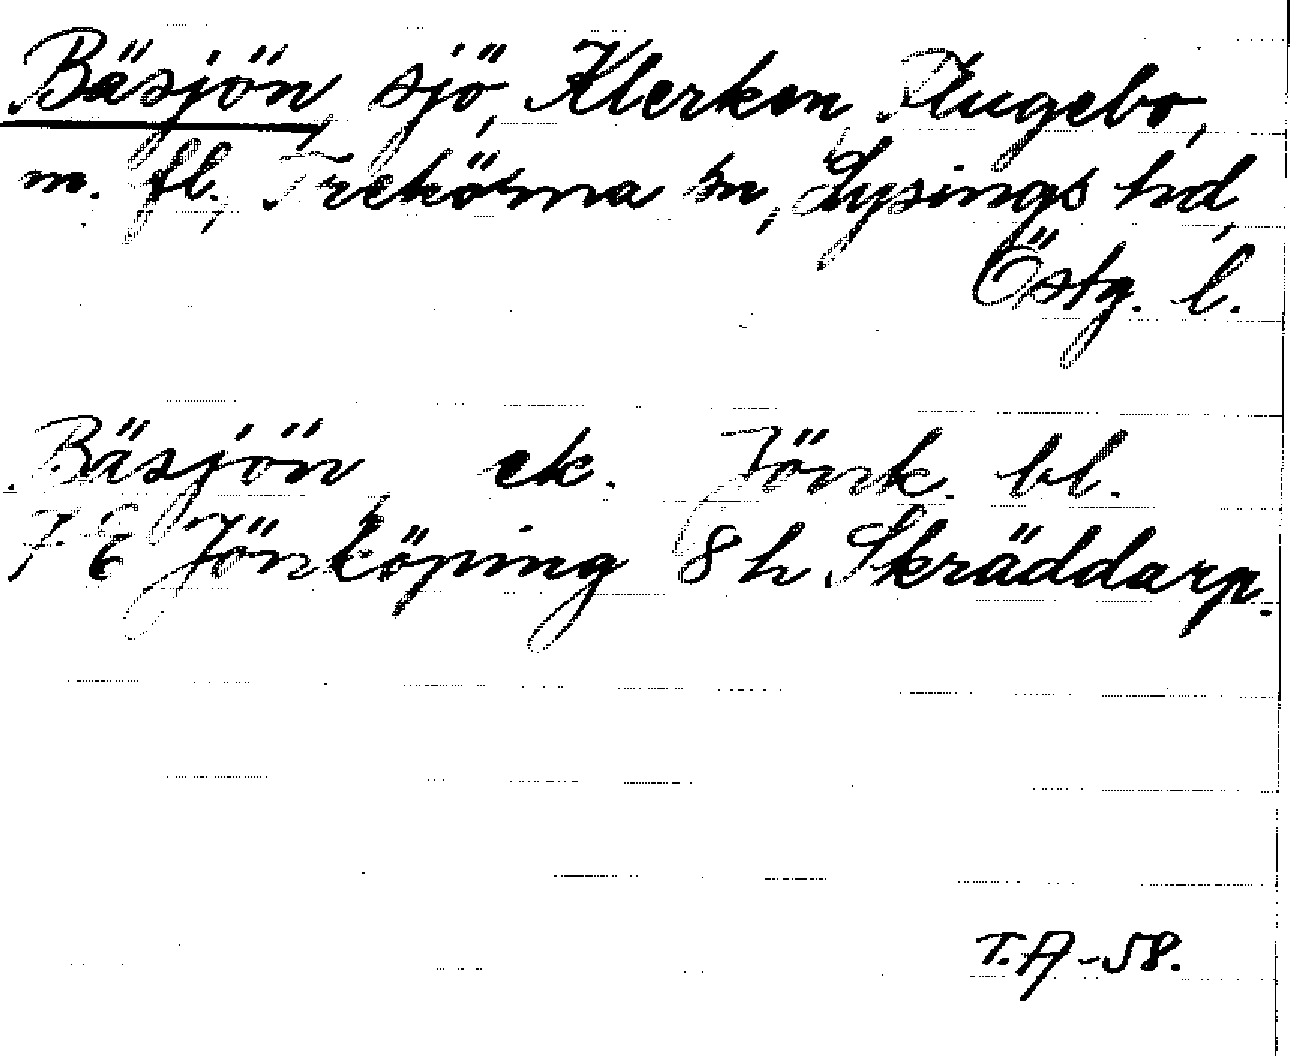 Bäsjön, sjö, Klerken, Plugebo,
m. fl., Trehörna sn, Lysings hd,
Östg. l.
Bäsjön ek. Jönk. bl.
7 E Jönköping 8 h Skräddarp.
T.A -58.